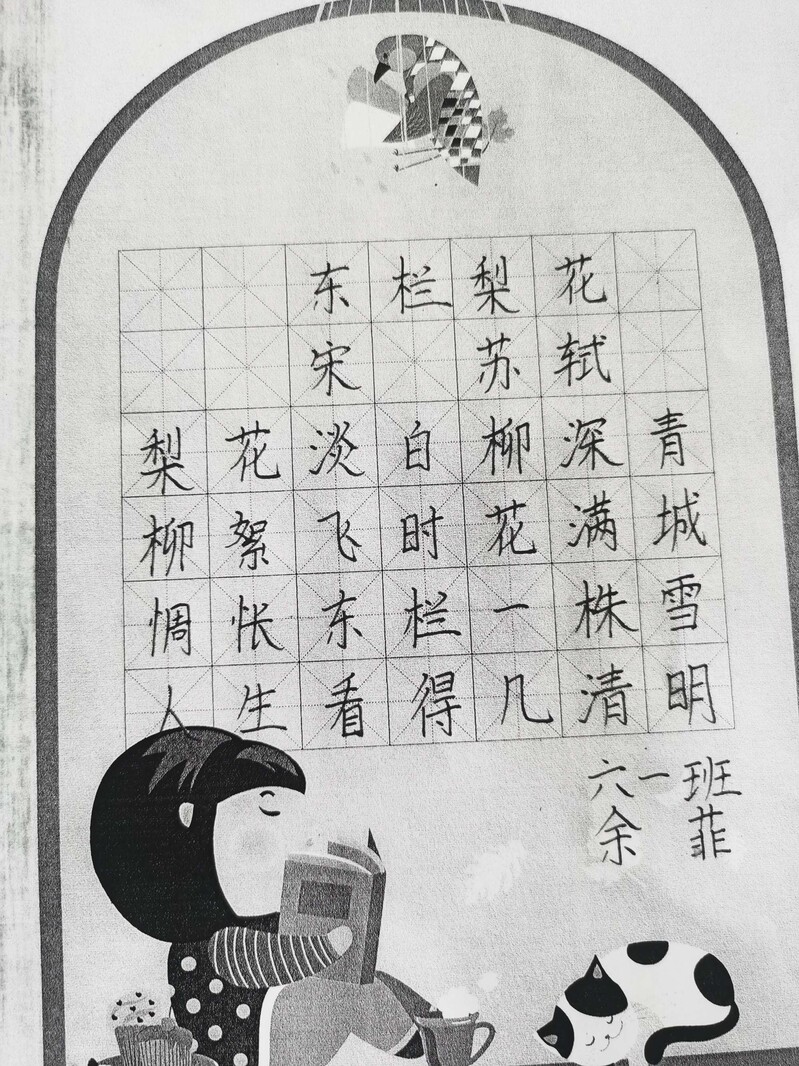 东栏梨花
宋 苏轼
梨花淡白柳深青
柳絮飞时花满城
惆怅东栏一株雪
人生看得几清明
六一班
余菲